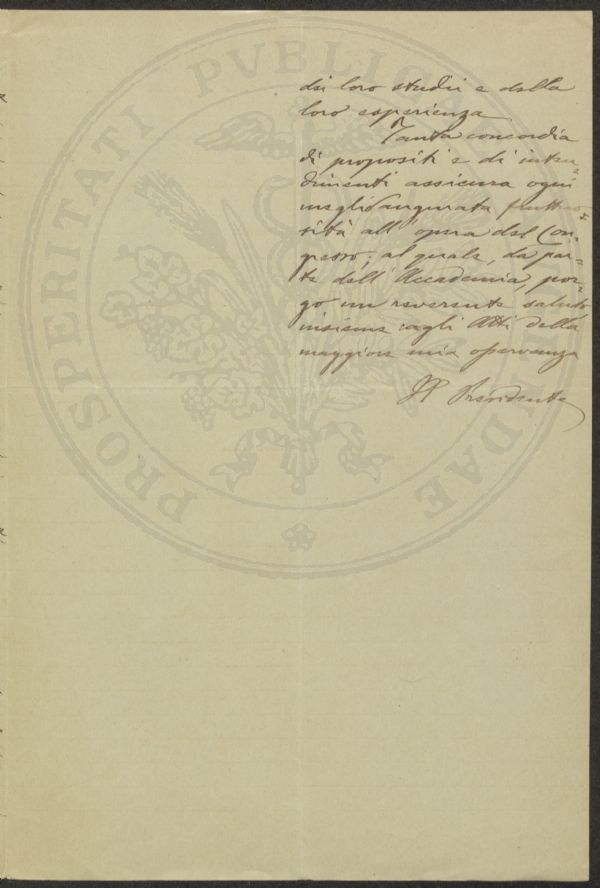 PROSPERITATI PVBLICAE AVGENDAE
dei loro studii e della
loro esperienza
Tanta concordia
di propositi e di inten=
dimenti assicura ogni
meglio augurata fruttuo=
sità all'opera del Con=
gresso; al quale, da par=
te dell'Accademia, por=
go un reverente saluto
insieme agli Atti della
maggiore mia osservanza
Il Presidente